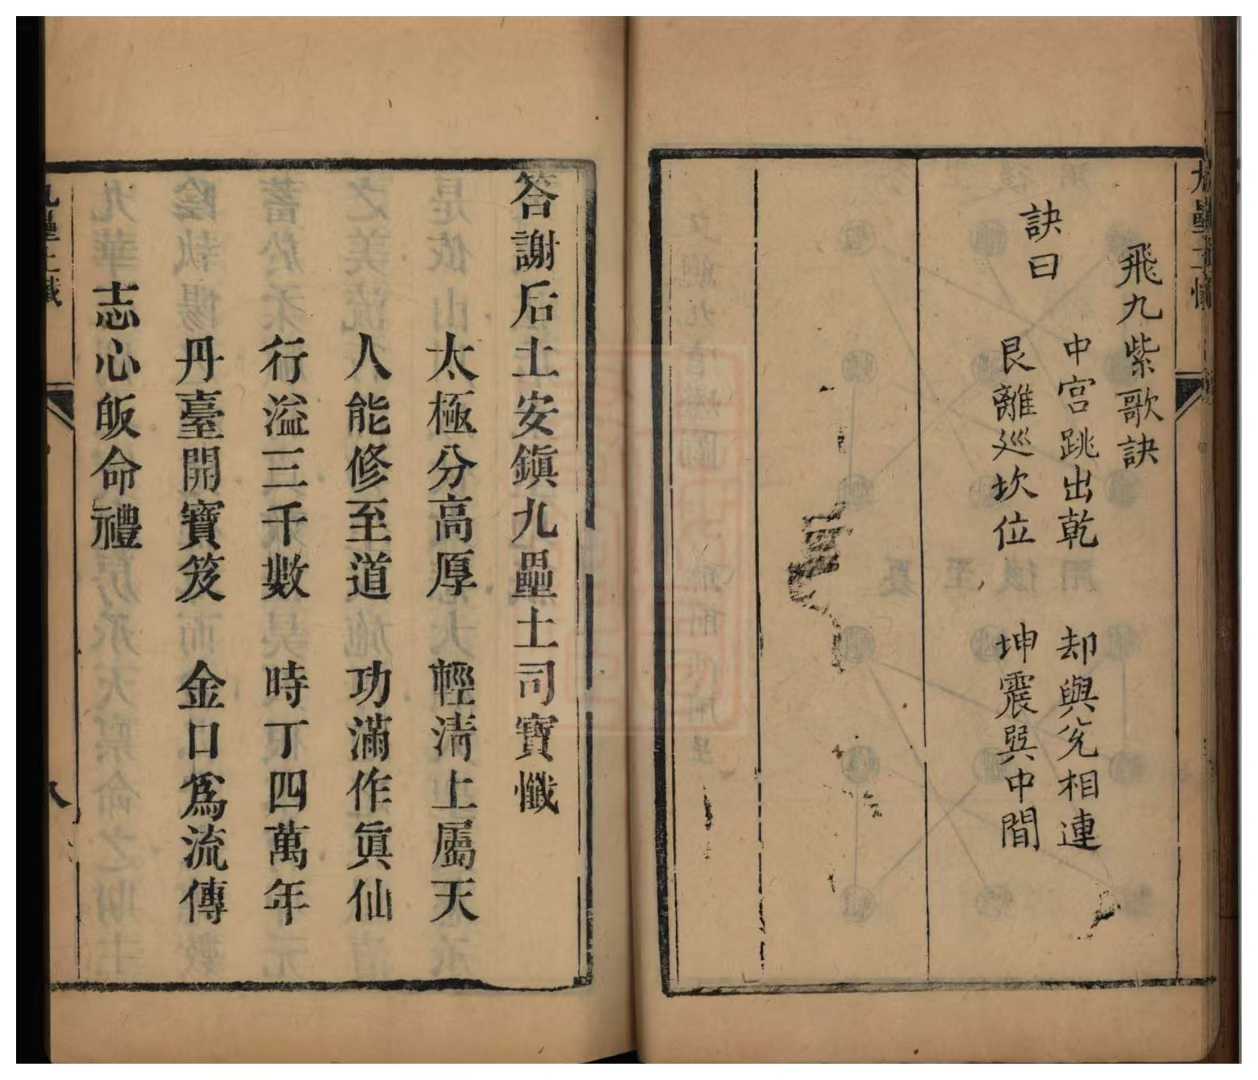 九壘土懺
飛九紫歌訣
訣曰
中宮跳出乾　却與兊相連
艮離巡坎位　坤震巽中間
答謝后土安鎮九壘土司寶懺
太極分高厚　輕清上屬天
人能修至道　功滿作眞仙
行溢三千數　時丁四萬年
丹臺開寶笈　金口爲流傳
志心皈命禮
九壘土懺
八